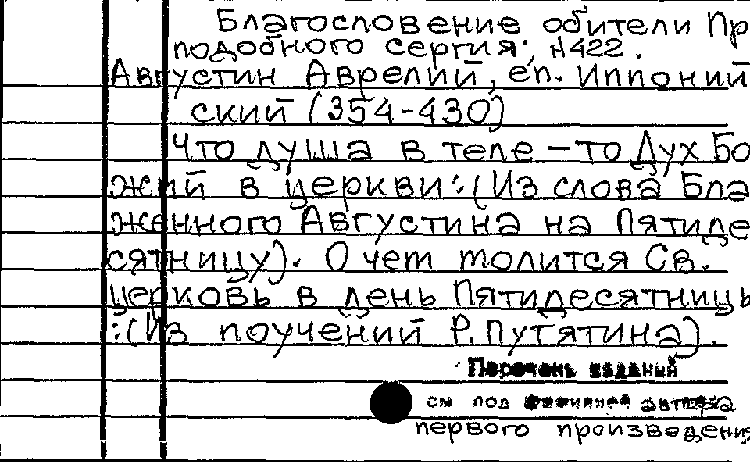 Благословение обители Пр
подобного сергия; н422.
Августин Аврелий, еп. Иппоний
ский (354-430)
Что душа в теле – то Дух Бо
жий в церкви:(Из слова Бла
женного Августина на Пятиде
сятницу). О чем молится Св.
церковь в день Пятидесятницы
:(Из поучений Р.Путятина).
Перечень изданий
см под фамилией автора
первого произведения